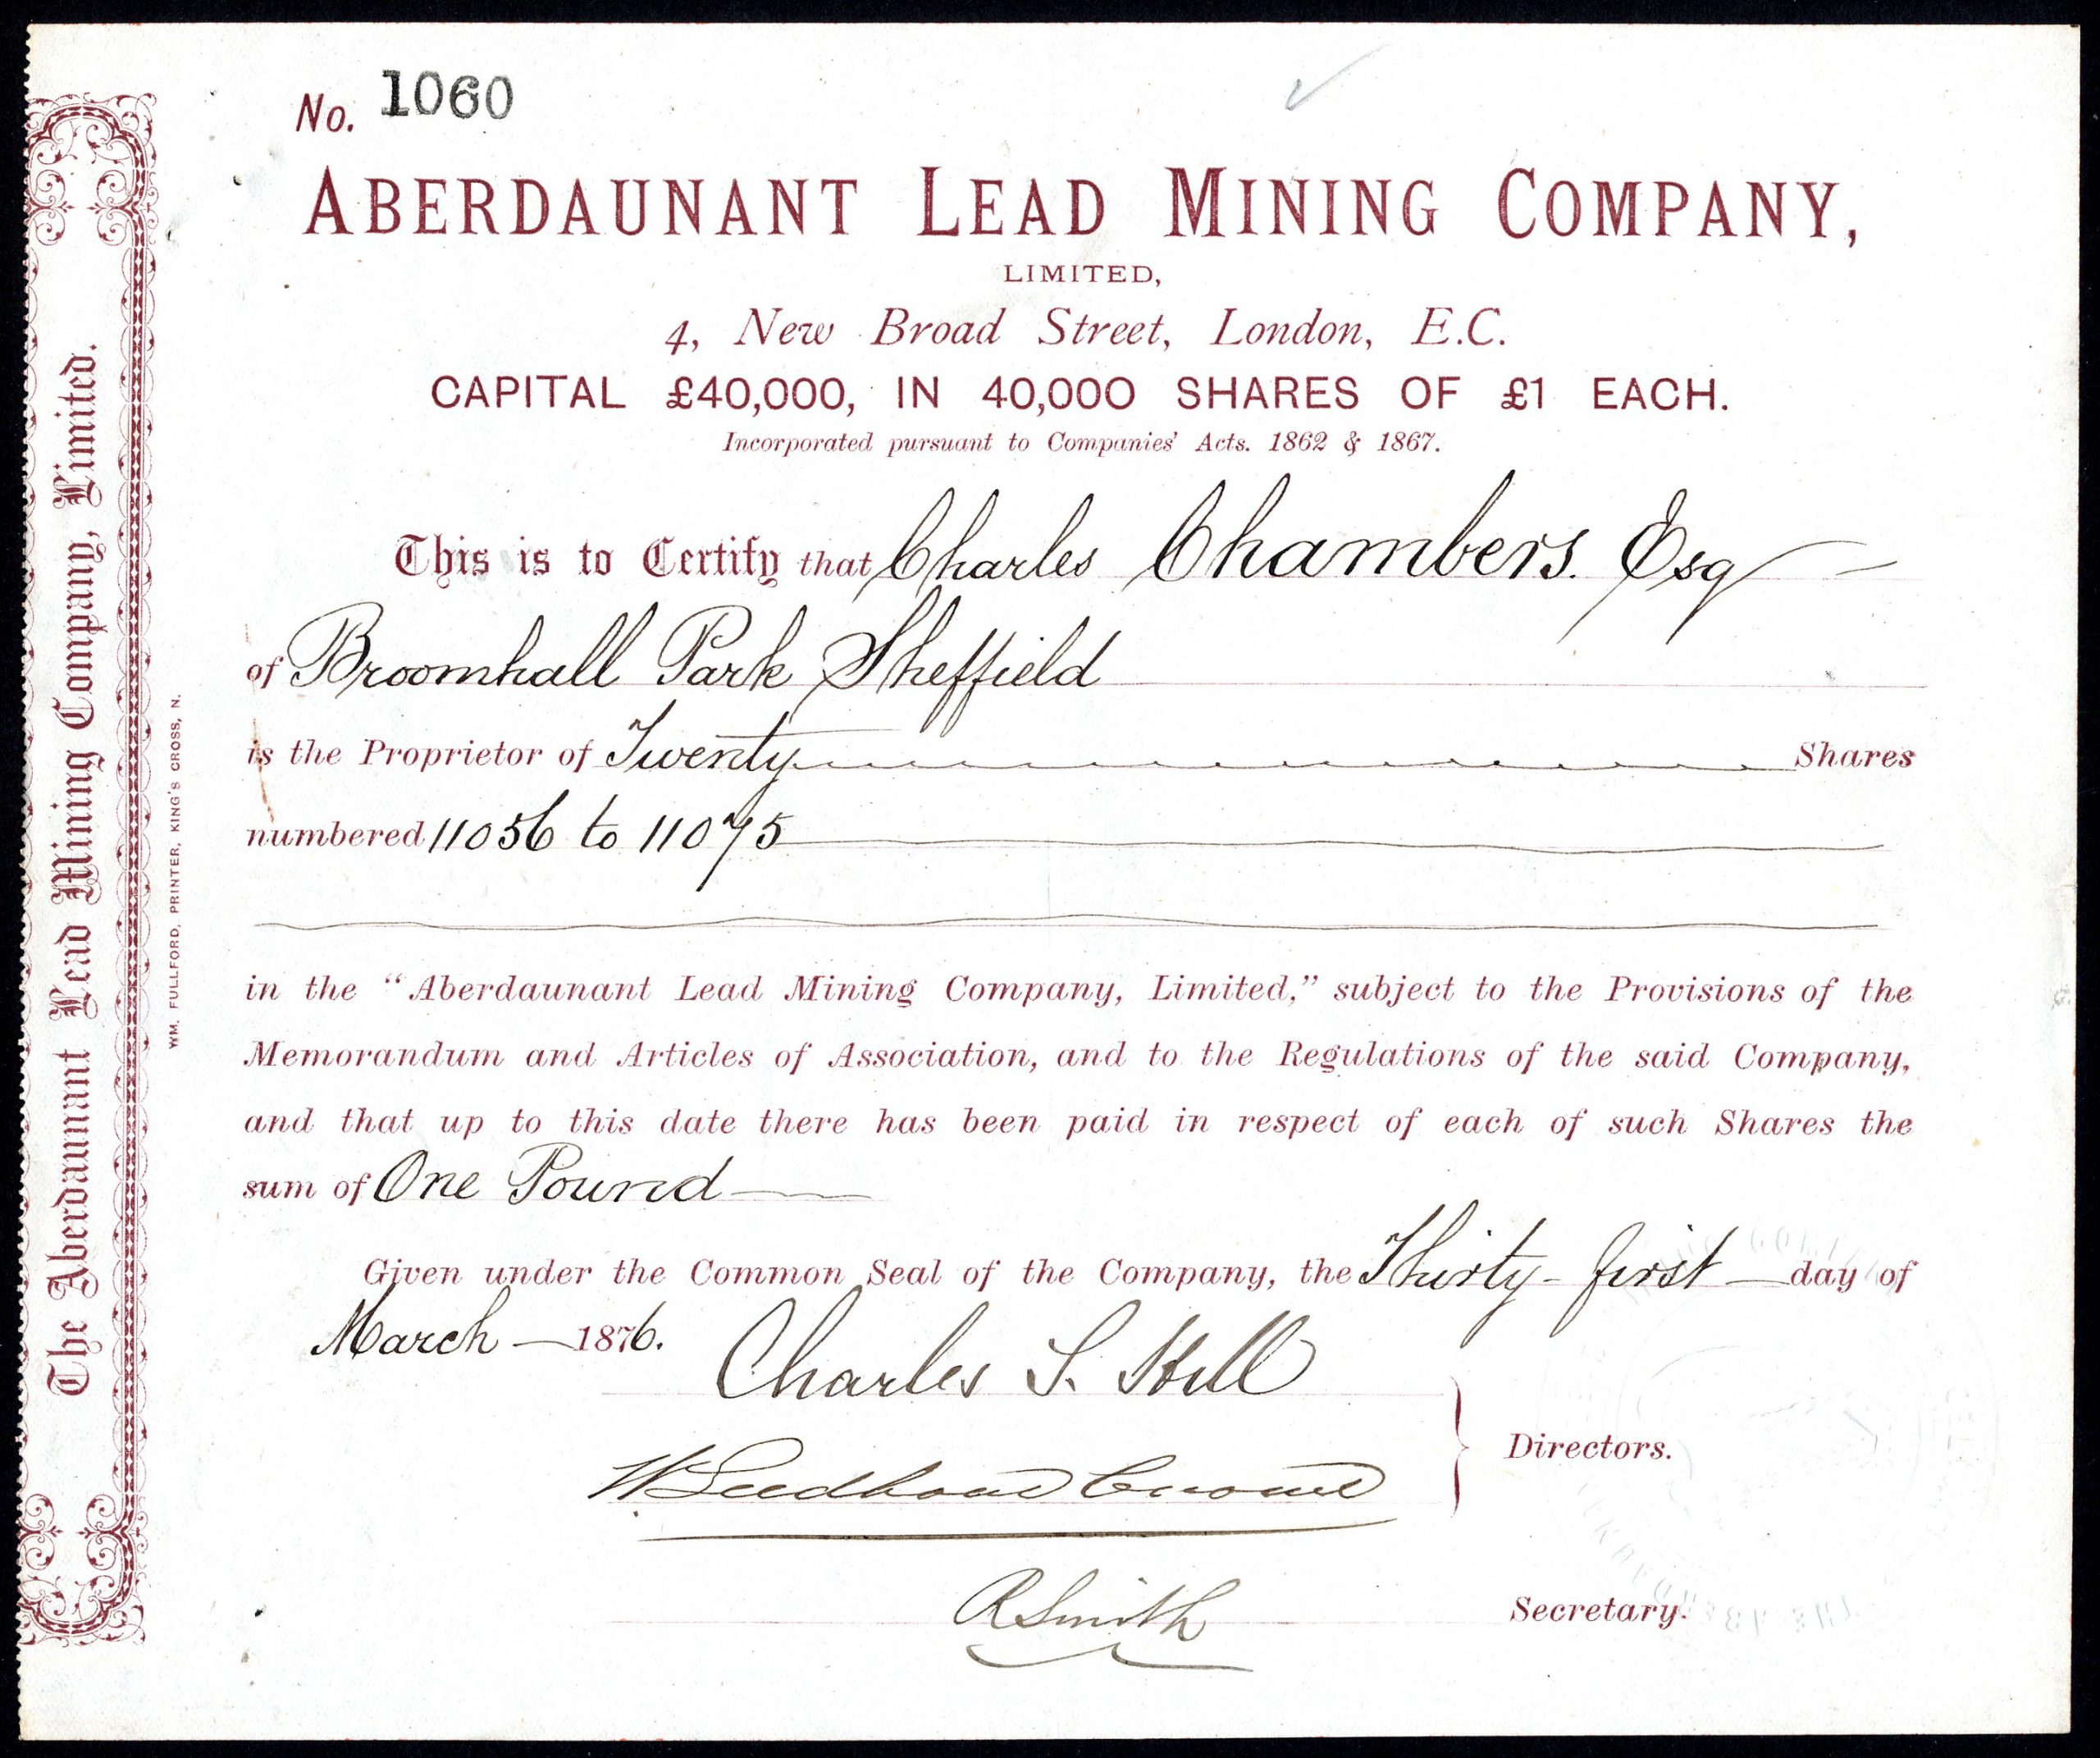 No. 1060
ABERDAUNANT LEAD MINING COMPANY,
LIMITED,
4, New Broad Street, London, E.C.
CAPITAL £40,000, IN 40,000 SHARES OF £1 EACH.
Incorporated pursuant to Companies' Acts. 1862 & 1867.
This is to Certify that Charles Chambers. Esq
of Broomhall Park Sheffield
is the Proprietor of Twenty Shares
numbered 11056 to 11075
in the “Aberdaunant Lead Mining Company, Limited,” subject to the Provisions of the
Memorandum and Articles of Association, and to the Regulations of the said Company,
and that up to this date there has been paid in respect of each of such Shares the
sum of One Pound
Given under the Common Seal of the Company, the Thirty-first day of
March 1876.
Charles S.
W
Directors.
R Smith
Secretary.
The Aberdaunant Lead Mining Company, Limited.
WM. FULLFORD, PRINTER, KING'S CROSS, N.